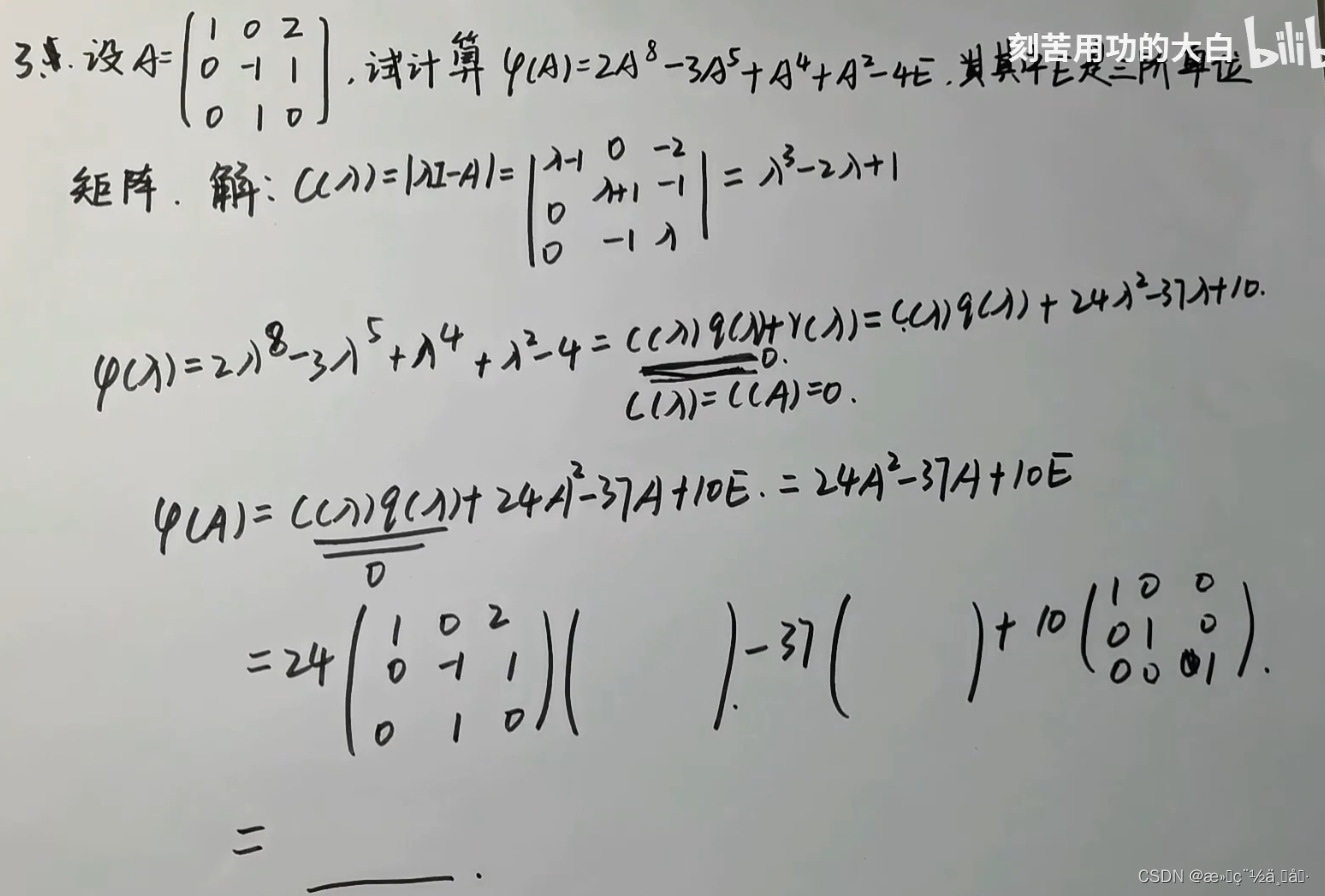 刻苦用功的大白 bilib
3. 设A=(1 0 2 0 -1 1 0 1 0), 试计算 φ(A)=2A⁸-3A⁵+A⁴+A²-4E, 其中E是三阶单位
矩阵. 解: C(λ)=|λI-A|=|λ-1 0 -2 0 λ+1 -1 0 -1 λ|=λ³-2λ+1
φ(λ)=2λ⁸-3λ⁵+λ⁴+λ²-4=C(λ)q(λ)+r(λ)=C(λ)q(λ)+24λ²-37λ+10.
0.
C(λ)=C(A)=0.
φ(A)=C(λ)q(λ)+24A²-37A+10E.=24A²-37A+10E
0
=24(1 0 2 0 -1 1 0 1 0)( ).-37( )+10(1 0 0 0 1 0 0 0 1).
= .
CSDN @æ»ç¨½ä¸å·